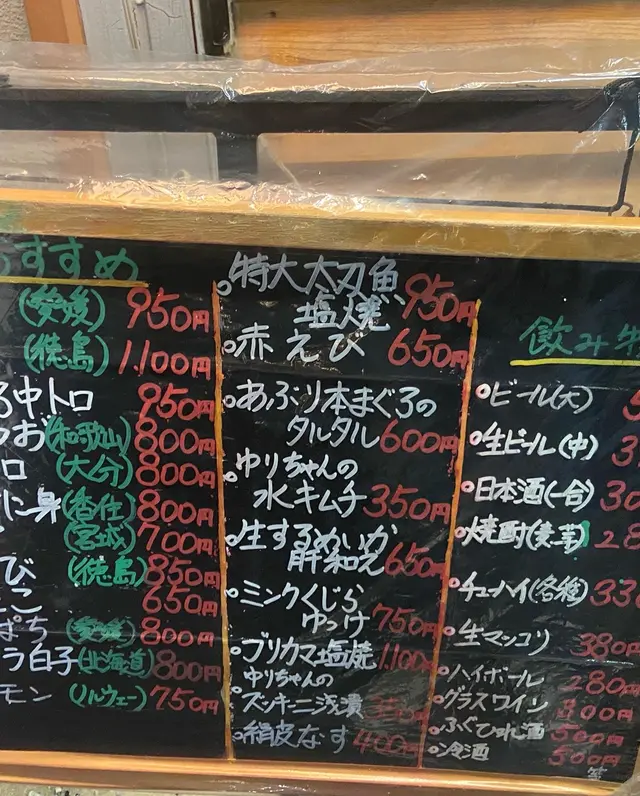 すすめ
(愛媛) 950円
(徳島) 1.100円
中トロ 950円
お(和歌山) 800円
ロ (大分) 800円
に身(香住) 800円
(宮城) 700円
び (徳島) 850円
こ 650円
ぱち (愛媛) 800円
ラ白子(北海道) 800円
モン (ノルウェー) 750円
特大太刀魚
塩焼 950円
赤えび 650円
あぶり本まぐろの
タルタル 600円
ゆりちゃんの
水キムチ 350円
生するめいか
肝和え 650円
ミンクくじら
ゆっけ 750円
ブリカマ塩焼 1.100円
ゆりちゃんの
ズッキーニ浅漬
絹皮なす 400円
飲み
ビール(大)
生ビール(中)
日本酒(一合)
焼酎(麦芋)
チューハイ(各種)
生マッコリ 380円
ハイボール 280円
グラスワイン 300円
ふぐひれ酒 500円
冷酒 500円